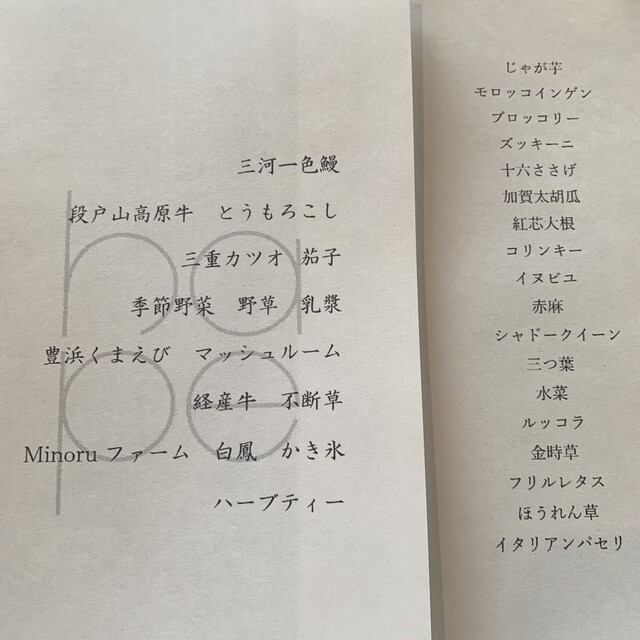 三河一色鰻
段戸山高原牛 とうもろこし
三重カツオ 茄子
季節野菜 野草 乳漿
豊浜くまえび マッシュルーム
経産牛 不断草
Minoru ファーム 白鳳 かき氷
ハーブティー
ha
pe
じゃが芋
モロッコインゲン
ブロッコリー
ズッキーニ
十六ささげ
加賀太胡瓜
紅芯大根
コリンキー
イヌビユ
赤麻
シャドークイーン
三つ葉
水菜
ルッコラ
金時草
フリルレタス
ほうれん草
イタリアンパセリ